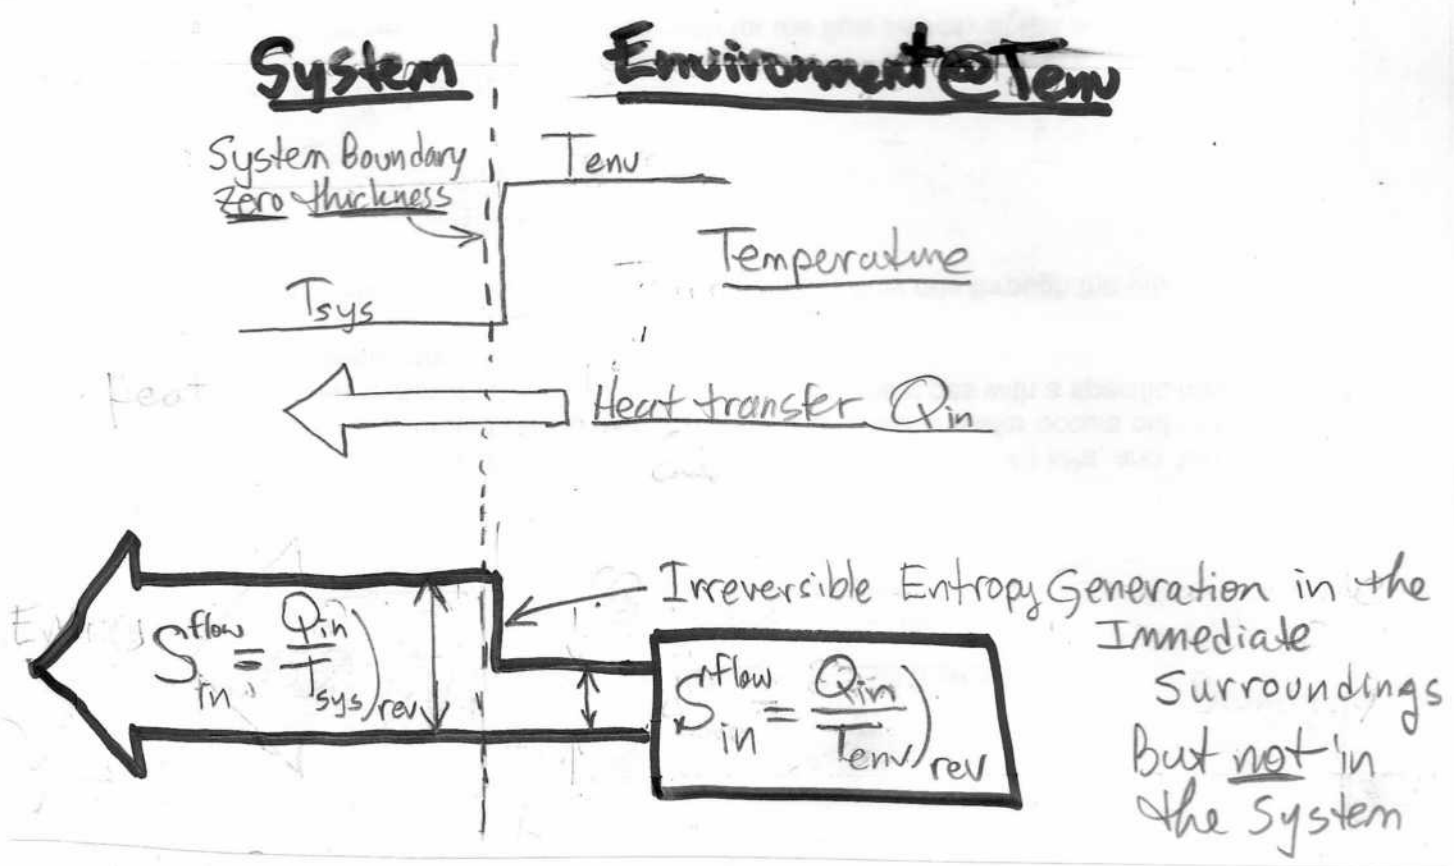 System
Environment@Tenv
System Boundary
zero thickness
Tenv
Temperature
Tsys
Heat transfer Qin
Irreversible Entropy Generation in the
Immediate
Surroundings
But not in
the System
S_in^flow = Qin/Tsys)rev
S_in^flow = Qin/Tenv)rev